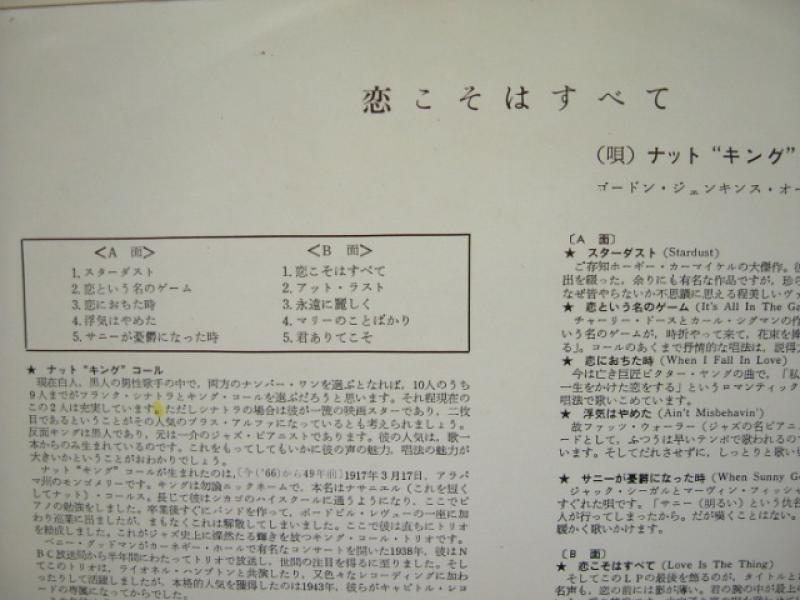 恋こそはすべて
（唄）ナット“キング”
ゴードン・ジェンキンス・オー
＜A 面＞
1. スターダスト
2. 恋という名のゲーム
3. 恋におちた時
4. 浮気はやめた
5. サニーが憂鬱になった時
＜B 面＞
1. 恋こそはすべて
2. アット・ラスト
3. 永遠に麗しく
4. マリーのことばかり
5. 君ありてこそ
★ ナット“キング”コール
現在白人、黒人の男性歌手の中で、両方のナンバー・ワンを選ぶとなれば、10人のうち
9人までがフランク・シナトラとキング・コールを選ぶだろうと思います。それ程現在の
この2人は充実しています。ただしシナトラの場合は彼が一流の映画スターであり、二枚
目であるということがその人気のプラス・アルファになっているとも考えられましょう。
反面キングは黒人であり、元は一介のジャズ・ピアニストであります。彼の人気は、歌一
本からのみ生まれているのです。これをもってしてもいかに彼の声の魅力、唱法の魅力が
大きいかということがおわかりでしょう。
ナット“キング”コールが生まれたのは、(今('66)から49年前)1917年3月17日、アラバ
マ州のモンゴメリーです。キングは勿論ニックネームで、本名はナサニエル（これを短く
してナット）・コールス。長じて彼はシカゴのハイスクールに通うようになり、ここでピ
アノの勉強をしました。卒業後すぐにバンドを作って、ボードビル・レヴューの一座に加
わり巡業に出ましたが、まもなくこれは解散してしまいました。ここで彼は直ちにトリオ
を結成しました。これがジャズ史上に燦然たる輝きを放つキング・コール・トリオです。
ベニー・グッドマンがカーネギー・ホールで有名なコンサートを開いた1938年、彼はN
BC放送局から半年間にわたってトリオで放送し、世間の注目を得るに至りました。そし
てこのトリオは、ライオネル・ハンプトンと共演したり、又色々なレコーディングに加わ
ったりして活躍しましたが、本格的人気を獲得したのは1943年、彼らがキャピトル・レコ
ードの専属になってからでした。
〔A 面〕
★ スターダスト (Stardust)
ご存知ホーギー・カーマイケルの大傑作。彼
出を綴った、余りにも有名な作品ですが、珍ら
なぜ皆やらないか不思議に思える程美しいヴァ
★ 恋という名のゲーム (It's All In The Ga
チャーリー・ドースとカール・シグマンの作
いう名のゲームが、時折やって来て、花束を捧
る」。コールのあくまで抒情的な唱法は、説得力
★ 恋におちた時 (When I Fall In Love)
今は亡き巨匠ビクター・ヤングの曲で、「私
一生をかけた恋をする」というロマンティック
唱法で歌いこめています。
★ 浮気はやめた (Ain't Misbehavin')
故ファッツ・ウォーラー（ジャズの名ピアニス
ードとして、ふつうは早いテンポで歌われるので
います。そしてだれさせずに、しっとりと歌い
★ サニーが憂鬱になった時 (When Sunny Ge
ジャック・シーガルとマーヴィン・フィッシャ
すぐれた唄です。「サニー（明るい）という
人が行ってしまったから。だが嘆くことはない。
緩かく歌いかけます。
〔B 面〕
★ 恋こそはすべて (Love Is The Thing)
そしてこのLPの最後を飾るのが、タイトルと
名声も、恋の前には影が薄い。君の腕の中が最